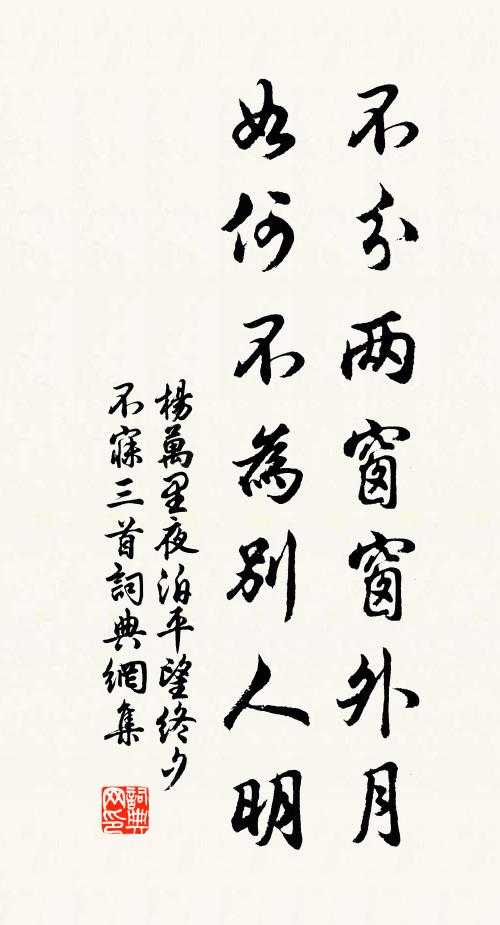 不分两窗窗外月
如何不為別人明
楊萬里夜泊平望終夕
不寐三首詞典網集
詞典
网印